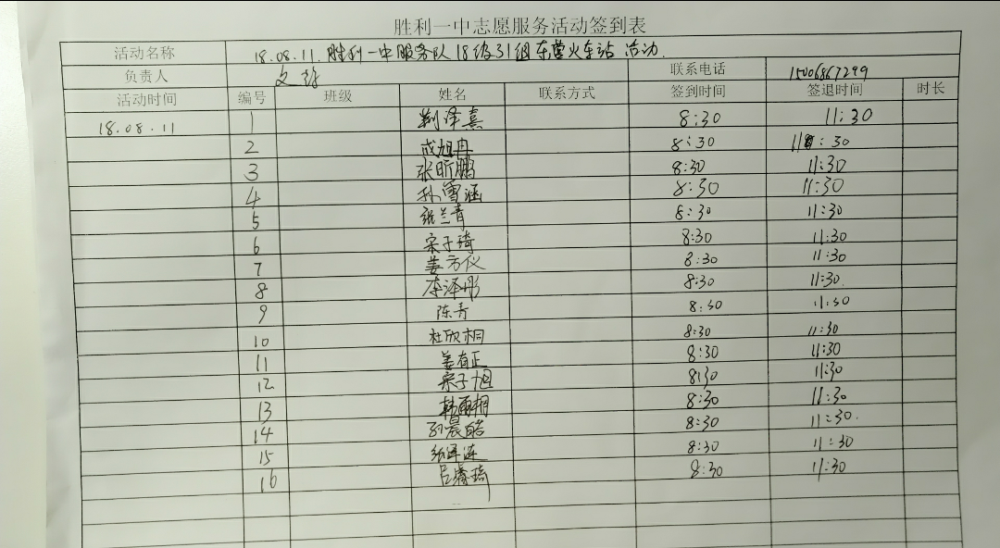 胜利一中志愿服务活动签到表
活动名称 18.08.11.胜利一中服务队18级31组东营火车站活动.
负责人 联系电话 15006867299
活动时间 编号 班级 姓名 联系方式 签到时间 签退时间 时长
18.08.11 1 荆泽熹 8:30 11:30
2 成旭冉 8:30 11:30
3 张昕鹏 8:30 11:30
4 孙雪涵 8:30 11:30
5 张兰青 8:30 11:30
6 宋子琦 8:30 11:30
7 姜方仪 8:30 11:30
8 李泽彤 8:30 11:30
9 陈 8:30 11:30
10 杜欣桐 8:30 11:30
11 姜有正 8:30 11:30
12 宋子旭 8:30 11:30
13 韩雨桐 8:30 11:30
14 孙晨皓 8:30 11:30
15 张泽 8:30 11:30
16 吕睿琦 8:30 11:30